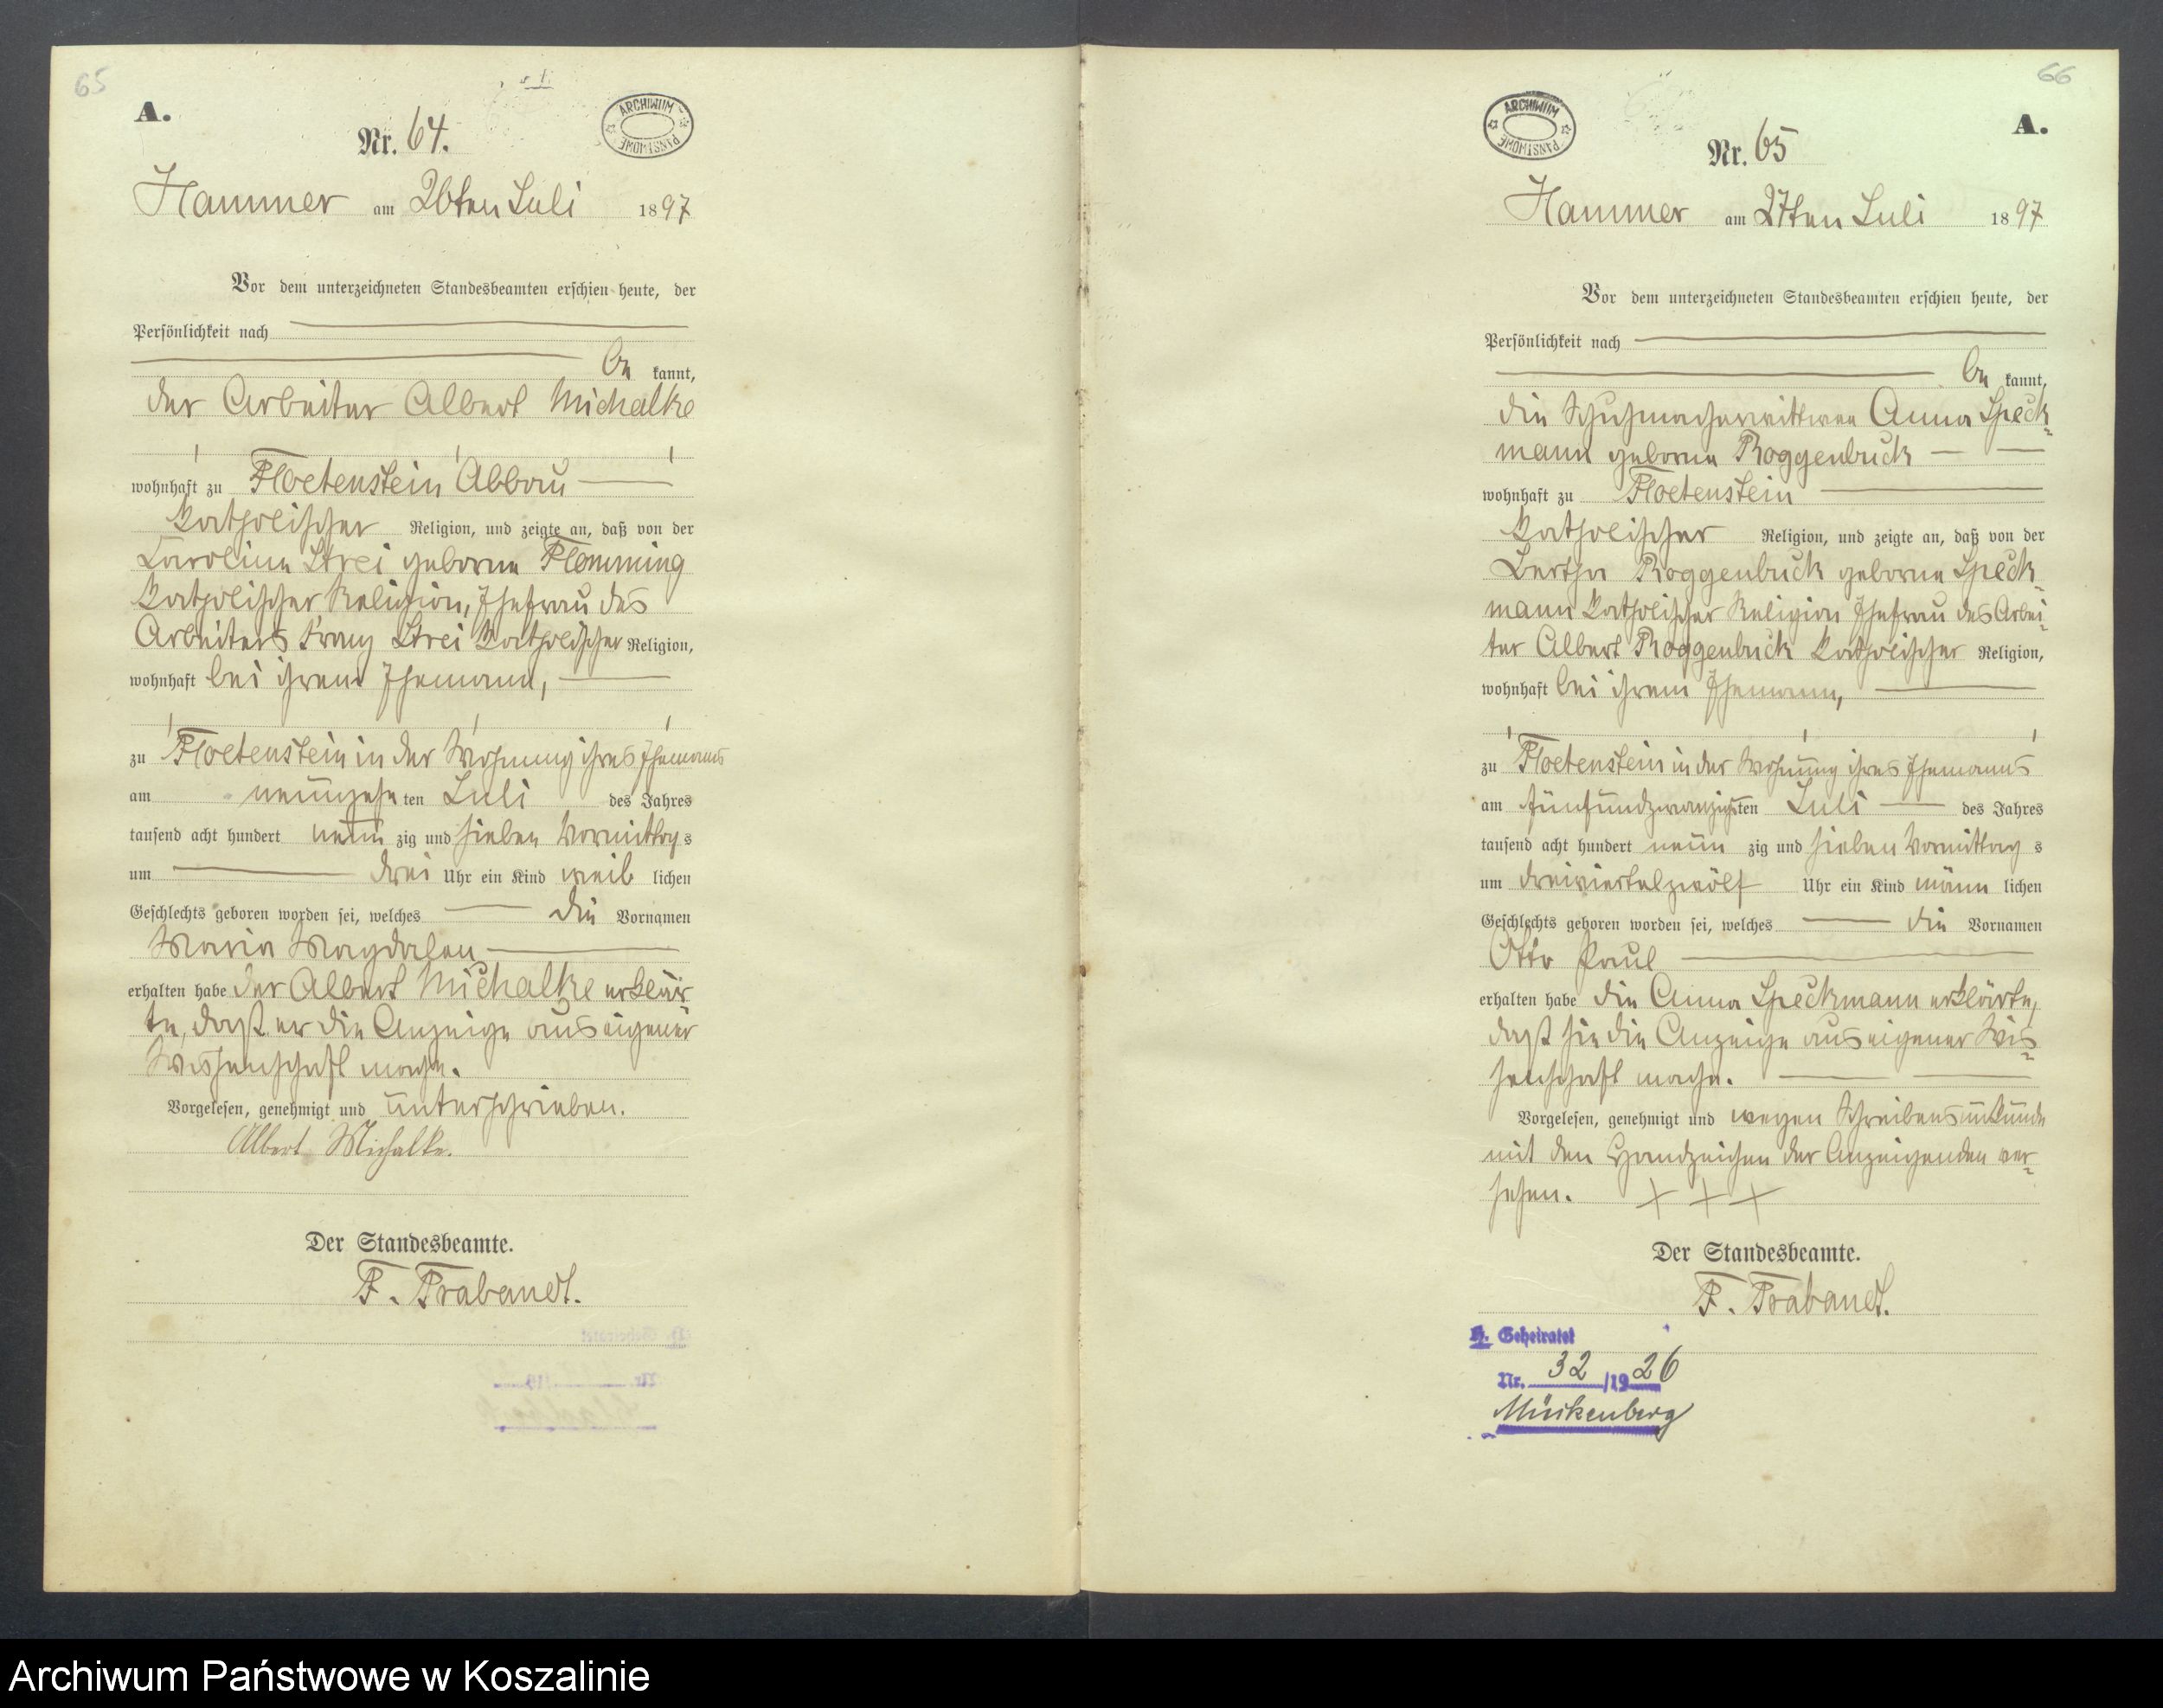 65
A.
ARCHIWUM PAŃSTWOWE
Nr. 64.
Hammer am 26ten Juli 1897
Vor dem unterzeichneten Standesbeamten erschien heute, der
Persönlichkeit nach
be kannt,
der Arbeiter Albert Michalke
wohnhaft zu Floetenstein Abbau
katholischer Religion, und zeigte an, daß von der
Caroline Strei geborne Flemming
katholischer Religion, Ehefrau des
Arbeiters Franz Strei katholischer Religion,
wohnhaft bei ihrem Ehemann,
zu Floetenstein in der Wohnung ihres Ehemanns
am neunzehn ten Juli des Jahres
tausend acht hundert neun zig und sieben Vormittag s
um drei Uhr ein Kind weib lichen
Geschlechts geboren worden sei, welches die Vornamen
Maria Magdalena
erhalten habe der Albert Michalke erklär
te, daß er die Anzeige aus eigener
Wissenschaft mache.
Vorgelesen, genehmigt und unterschrieben.
Albert Michalke.
Der Standesbeamte.
F. Trabandt.
66
A.
ARCHIWUM PAŃSTWOWE
Nr. 65
Hammer am 27ten Juli 1897
Vor dem unterzeichneten Standesbeamten erschien heute, der
Persönlichkeit nach
be kannt,
die Schuhmacherwittwe Anna Speck-
mann geborne Roggenbuck
wohnhaft zu Floetenstein
katholischer Religion, und zeigte an, daß von der
Bertha Roggenbuck geborne Speck-
mann katholischer Religion Ehefrau des Arbei-
ter Albert Roggenbuck katholischer Religion,
wohnhaft bei ihrem Ehemann,
zu Floetenstein in der Wohnung ihres Ehemanns
am fünfundzwanzigsten Juli des Jahres
tausend acht hundert neun zig und sieben Vormittag s
um dreiviertelzwölf Uhr ein Kind männ lichen
Geschlechts geboren worden sei, welches die Vornamen
Otto Paul
erhalten habe die Anna Speckmann erklärte,
daß sie die Anzeige aus eigener Wis-
senschaft mache.
Vorgelesen, genehmigt und wegen Schreibensunkunde
mit den Handzeichen der Anzeigenden ver-
sehen. + + +
Der Standesbeamte.
F. Trabandt.
H. Geheiratet
Nr. 32 /1926
Mückenberg
Archiwum Państwowe w Koszalinie